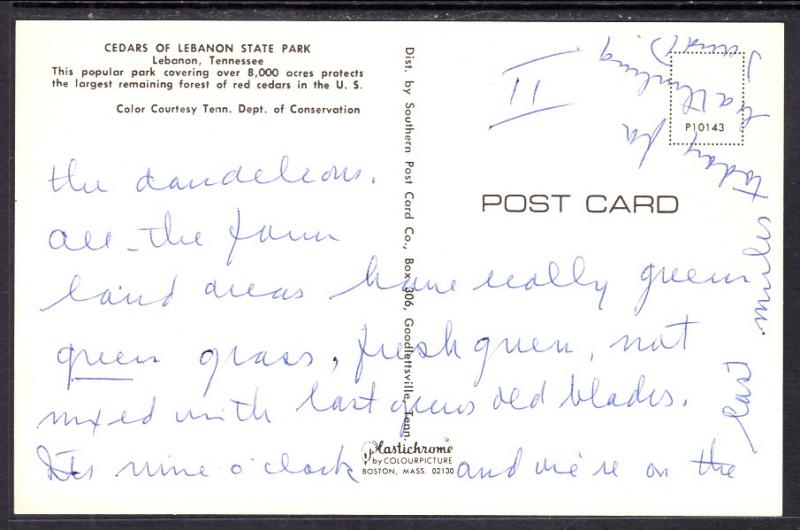 CEDARS OF LEBANON STATE PARK
Lebanon, Tennessee
This popular park covering over 8,000 acres protects
the largest remaining forest of red cedars in the U. S.
Color Courtesy Tenn. Dept. of Conservation
Dist. by Southern Post Card Co., Box 306, Goodlettsville, Tenn.
II
P10143
POST CARD
the dandelions.
All the farm
land areas have really green
green grass, fresh green, not
mixed with last years old blades.
Its nine o'clock and we're on the
last
minutes
today
Plastichrome
by COLOURPICTURE
BOSTON, MASS. 02130